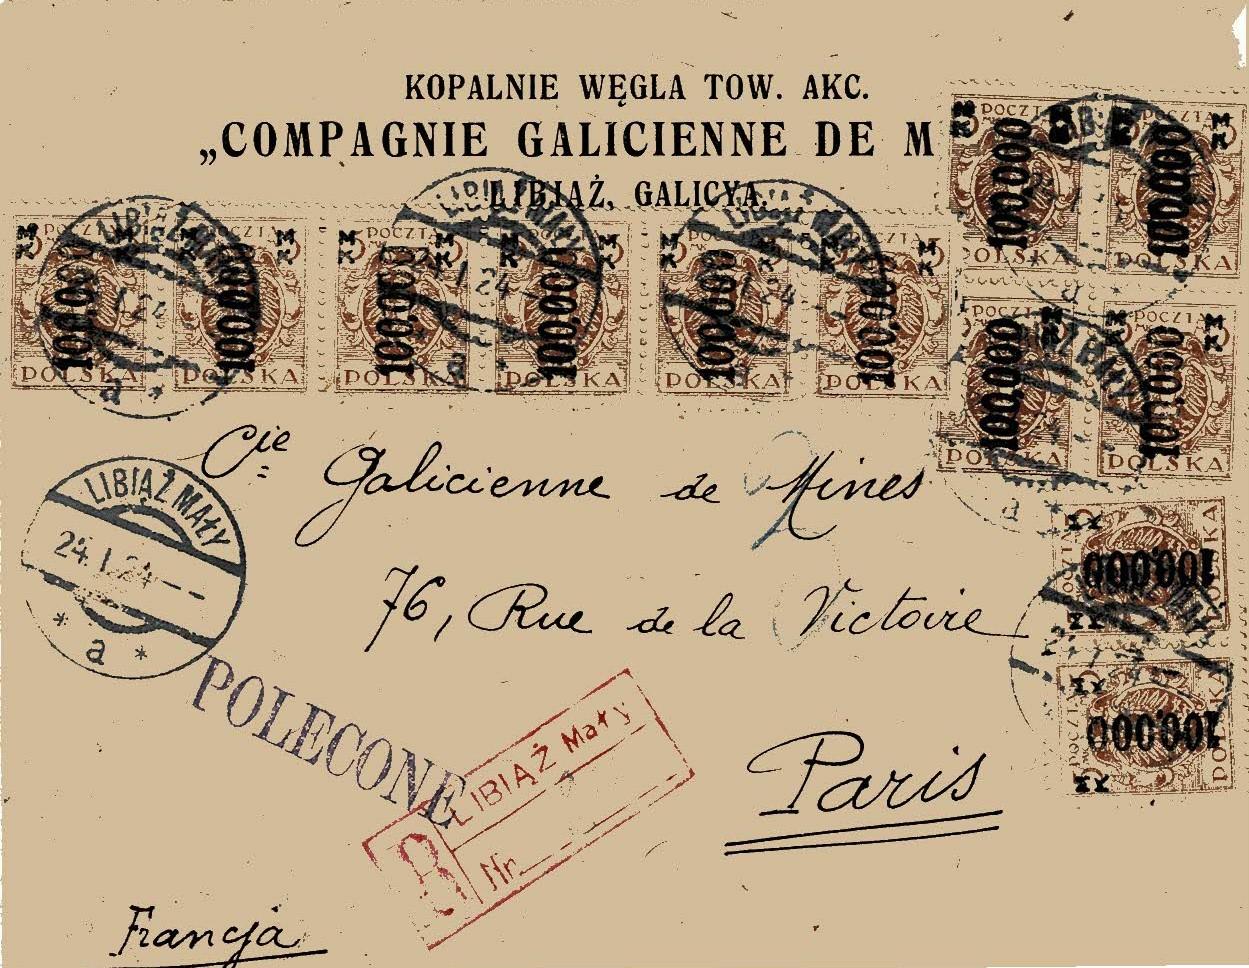 KOPALNIE WĘGLA TOW. AKC.
„COMPAGNIE GALICIENNE DE M
LIBIĄŻ, GALICYA.
POCZTA 100,000 MK POLSKA
POCZTA 100,000 MK POLSKA
POCZTA 100,000 MK POLSKA
POCZTA 100,000 MK POLSKA
POCZTA 100,000 MK POLSKA
POCZTA 100,000 MK POLSKA
POCZTA 100,000 MK POLSKA
POCZTA 100,000 MK POLSKA
POCZTA 100,000 MK POLSKA
POCZTA 100,000 MK POLSKA
POCZTA 100,000 MK POLSKA
POCZTA 100,000 MK POLSKA
Cie Galicienne de Mines
LIBIĄŻ MAŁY
24.I.24
* a *
76, Rue de la Victoire
POLECONE
LIBIĄŻ Mały
R Nr.
Paris
Francja